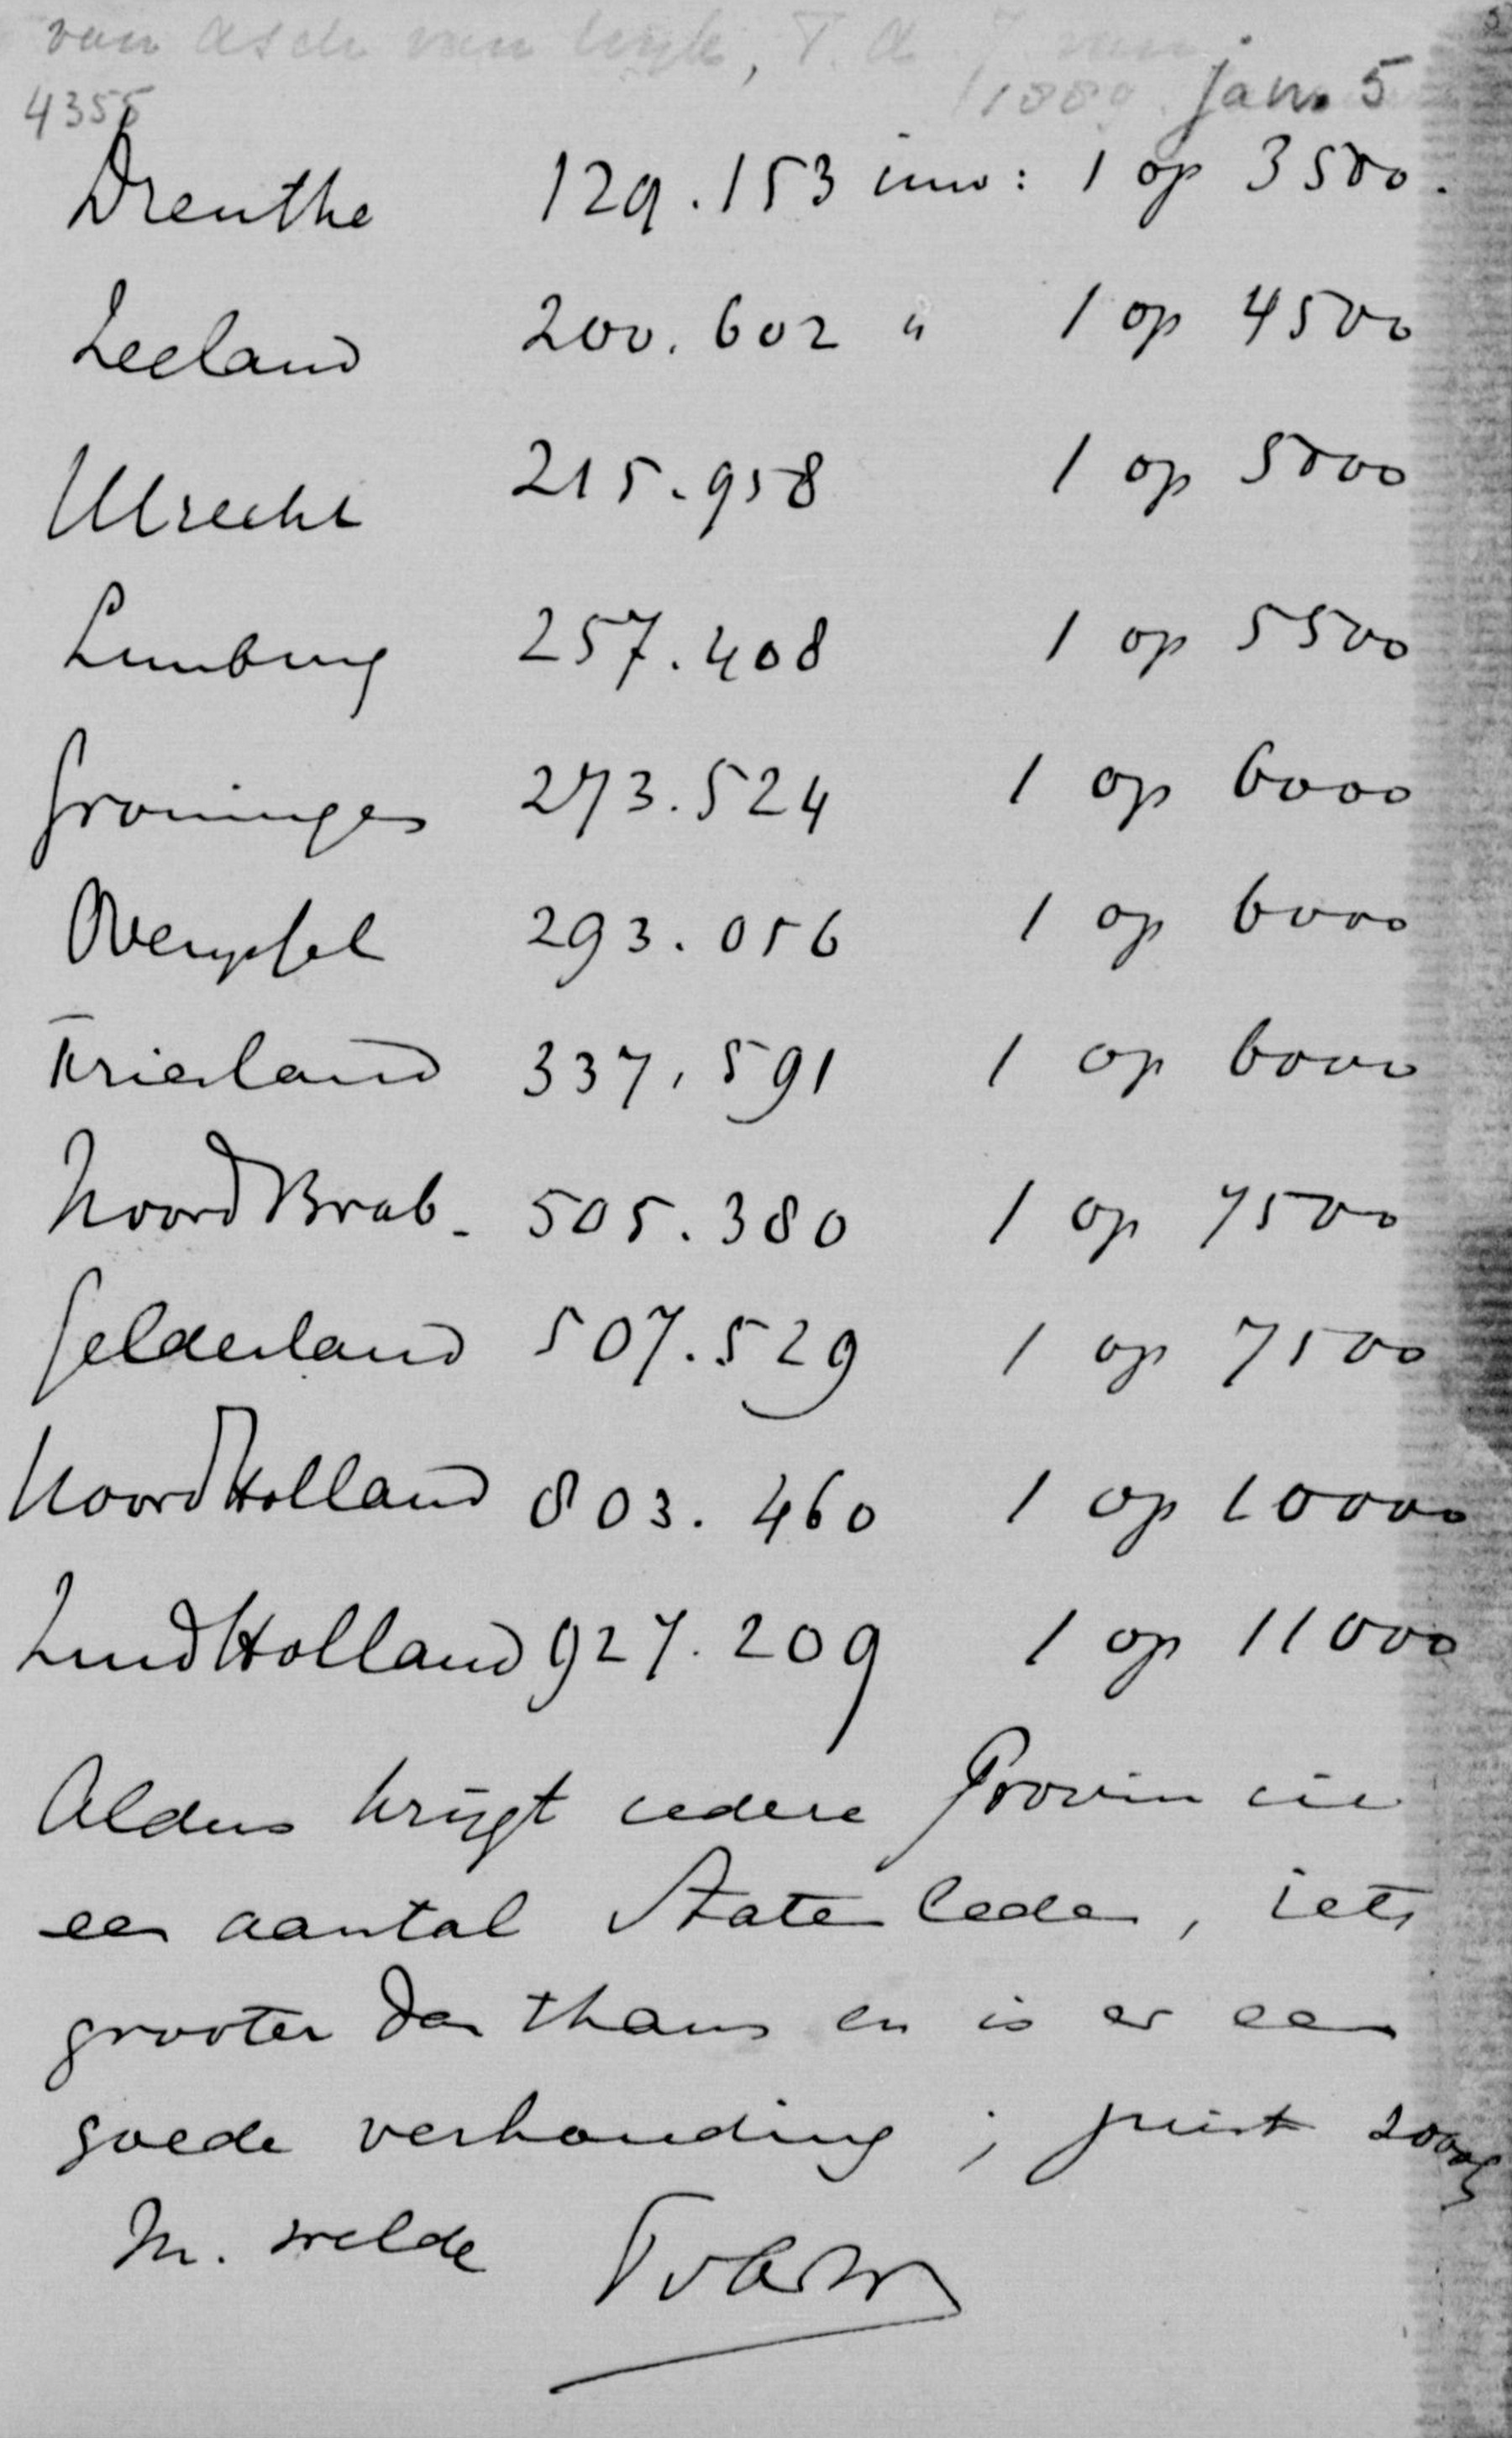 van Asch van Wijk, T. A. J. van
1889. jan. 5
4355
Drenthe 129.153 inw: 1 op 3500.
Zeeland 200.602 " 1 op 4500
Utrecht 215.958 1 op 5000
Limburg 257.408 1 op 5500
Groningen 273.524 1 op 6000
Overijssel 293.056 1 op 6000
Friesland 337.591 1 op 6000
Noord Brab. 505.380 1 op 7500
Gelderland 507.529 1 op 7500
Noord Holland 803.460 1 op 10000
Zuid Holland 927.209 1 op 11000
Aldus krijgt iedere Provincie
een aantal Statenleden, iets
grooter dan thans en is er een
goede verhouding; juist zooals
M. wilde